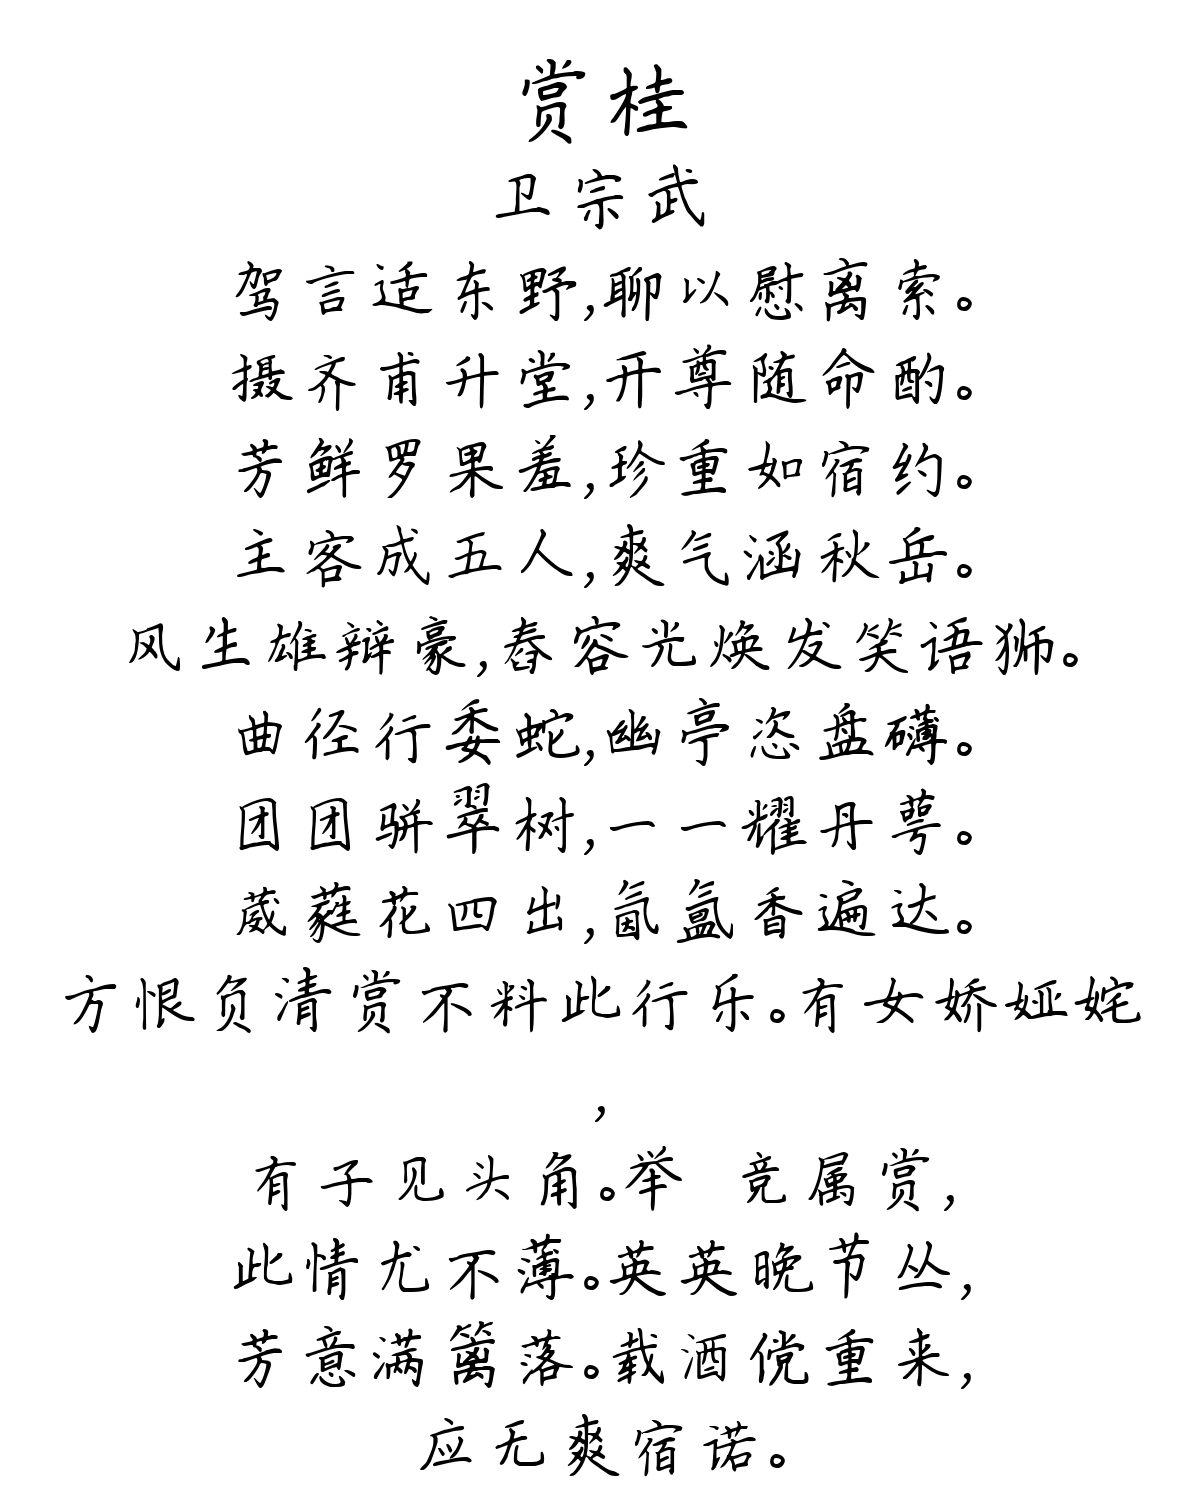 赏桂
卫宗武
驾言适东野,聊以慰离索。
摄齐甫升堂,开尊随命酌。
芳鲜罗果羞,珍重如宿约。
主客成五人,爽气涵秋岳。
风生雄辩豪,春容光焕发笑语狮。
曲径行委蛇,幽亭恣盘礴。
团团骈翠树,一一耀丹萼。
葳蕤花四出,氤氲香遍达。
方恨负清赏不料此行乐。有女娇娅姹
,
有子见头角。举 竞属赏,
此情尤不薄。英英晚节丛,
芳意满篱落。载酒傥重来,
应无爽宿诺。